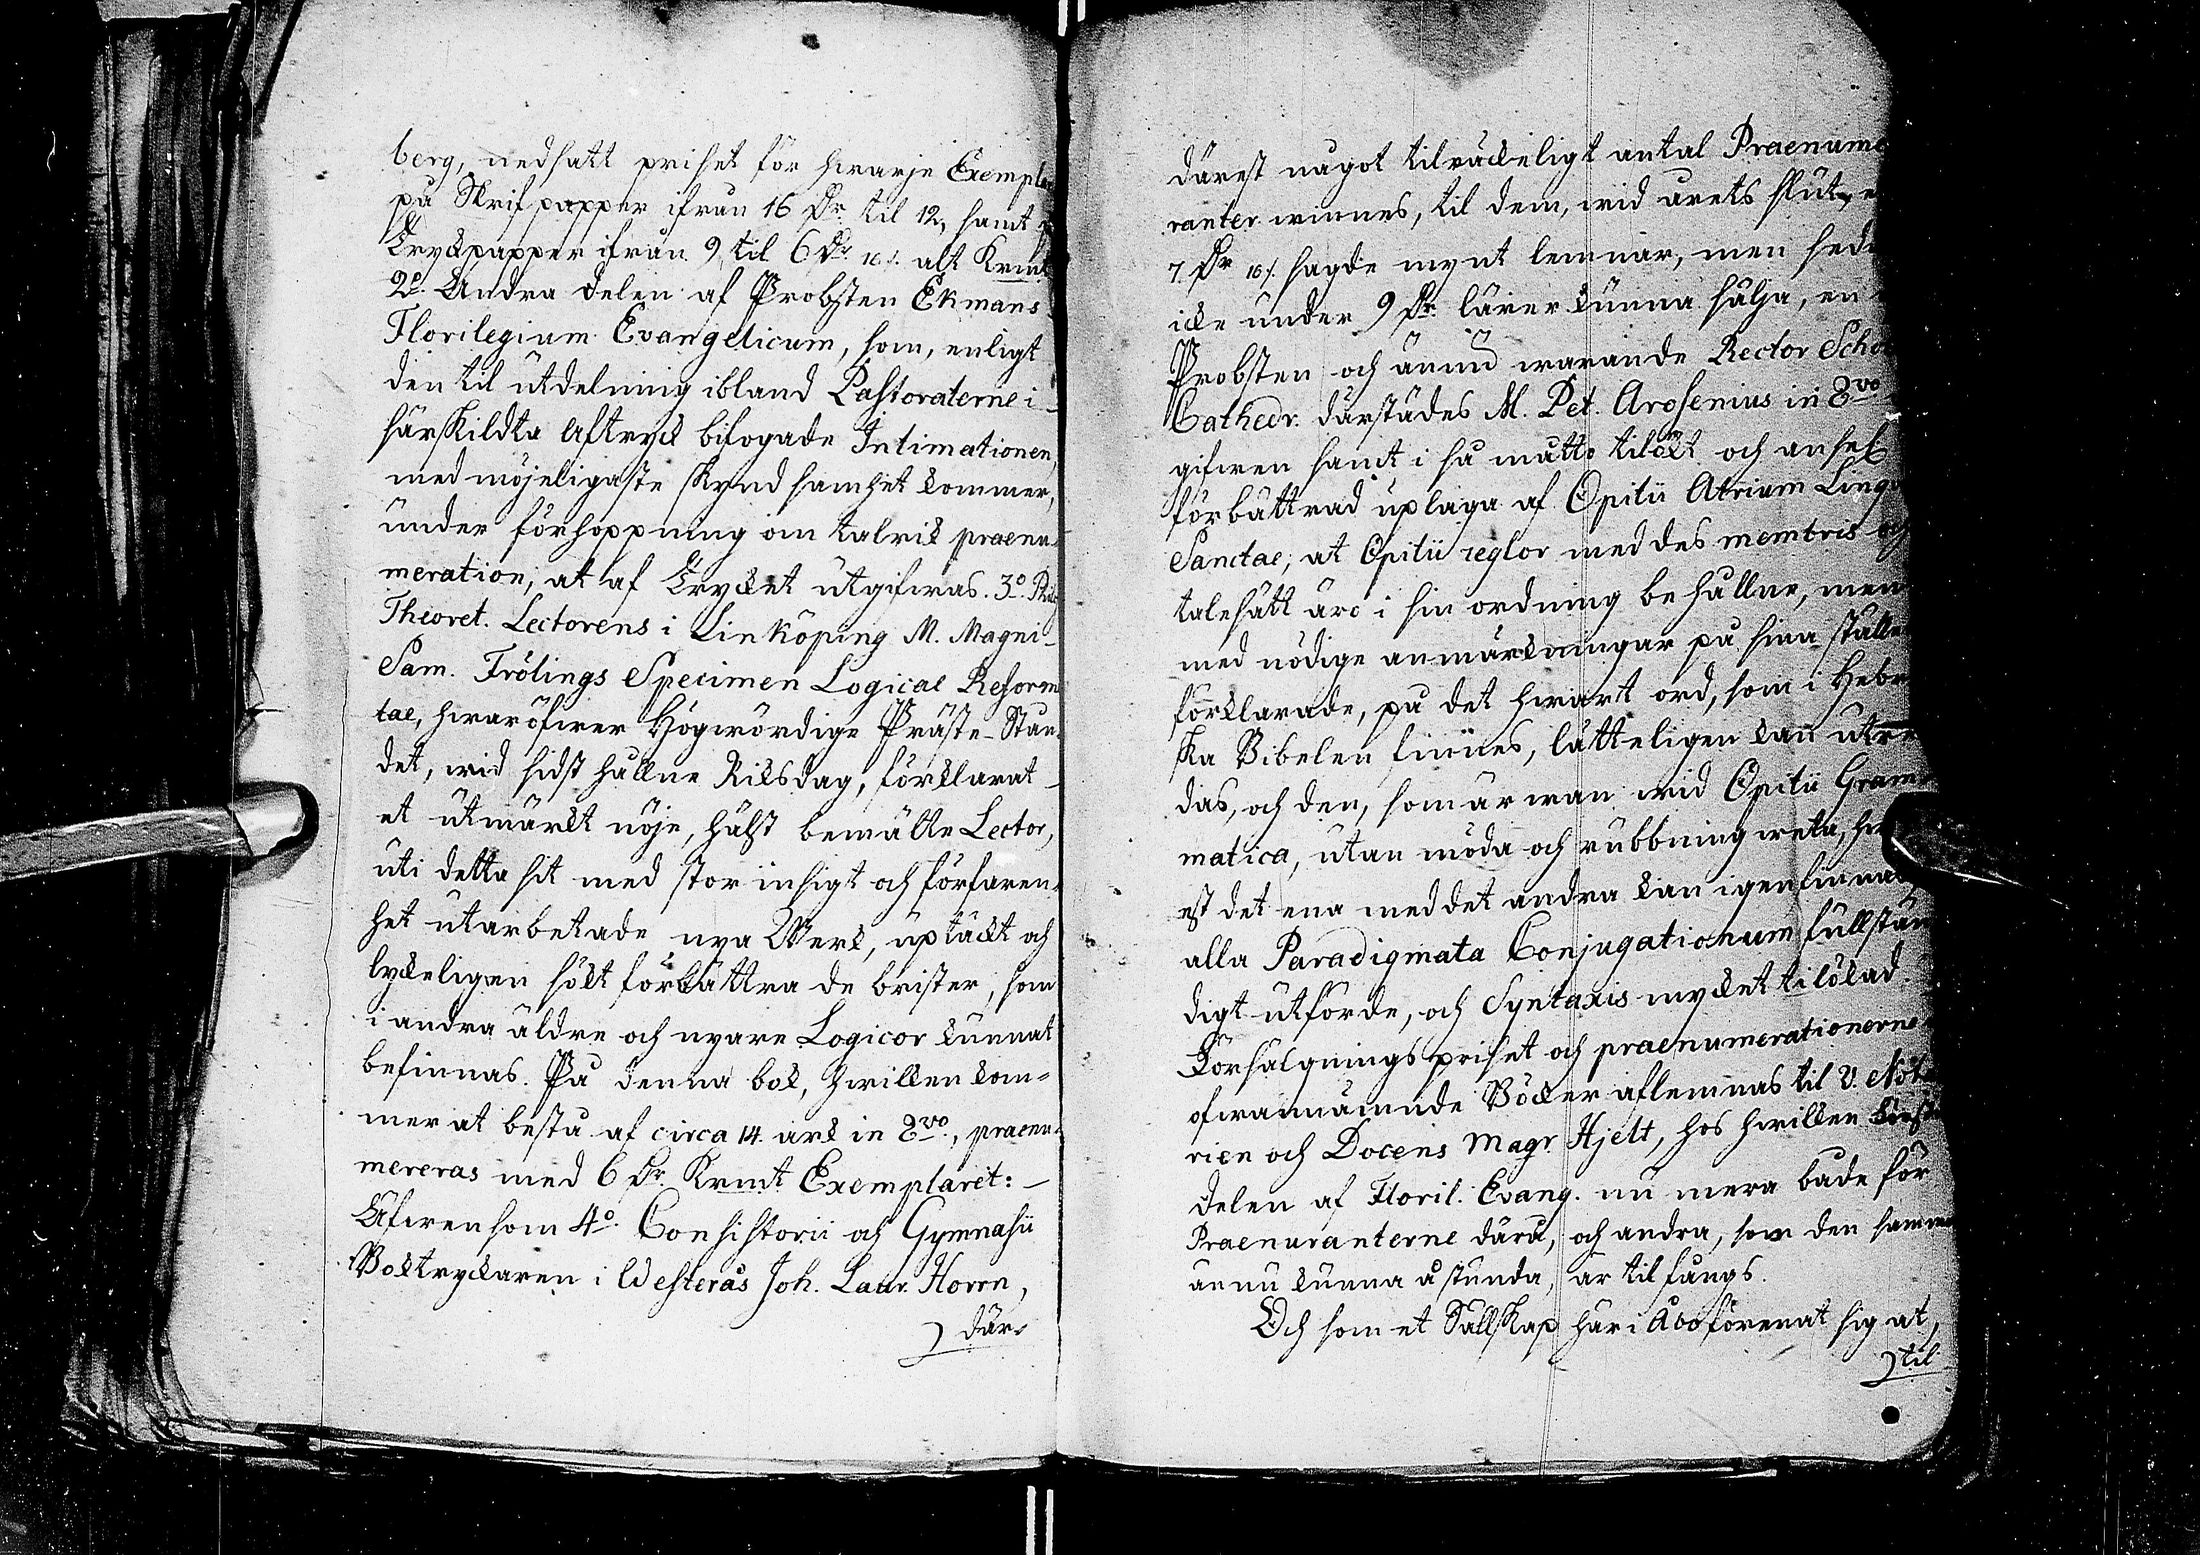 berg, nedsatt priset för hwarje Exempla
på Skrifpapper ifrån 16 Dr. til 12, samt
Tryckpapper ifrån 9 til 6 Dr. 10 /. alt Krmt
2o. Andra delen af Probsten Ekmans
Florilegium Evangelicum, som, enligt
den til utdelning ibland Pastoraterne i
särskildta Aftryck bifogade Intimationen,
med möjeligaste skyndsamhet kommer,
under förhoppning om talrik praenu-
meration, at af Trycket utgifwas. 3o. Phil.
Theoret. Lectorens i Linköping M. Magni
Sam. Frölings Specimen Logicae Reform
tae, hwaröfwer Högwördige Präste-Stån-
det, wid sidst hållne Riksdag, förklarat
et utmärkt nöje, hälst bemälte Lector,
uti detta sit med stor insigt och förfaren-
het utarbetade nya Werk, uptäckt och
lyckeligen sökt förbättra de brister, som
i andra äldre och nyare Logicor kunnat
befinnas. På denna bok, hwilken kom-
mer at bestå af circa 14 ark in 8vo., praenu-
mereras med 6 Dr. Krmt Exemplaret: -
Äfwensom 4o. Consistorii och Gymnasii
Boktryckaren i Westerås Joh. Laur. Horrn,
där-
därest något tilräckeligt antal Praenume
ranter winnes, til dem, wid årets slut,
7 Dr 10 /. sagde mynt lemnar, men sed
icke under 9 Dr. lärer kunna sälja, en
Probsten och ännu warande Rector Scho
Cathedr. därstädes M. Pet. Arosenius in 8vo
gifwen samt i så måtto tilökt och ansel
förbättrad uplaga af Opitii Atrium Lingu
Sanctae, at Opitii reglor med des membris och
talesätt äro i sin ordning behållne, men
med nödige anmärkningar på sina ställen
förklarade, på det hwart ord, som i Hebr
ska Bibelen finnes, lätteligen kan utre
das, och den, som är wan wid Opitii Gram
matica, utan möda och rubbning weta, hw
est det ena med det andra kan igenfinnas,
alla Paradigmata Conjugationum fullstän
digt utförde, och Syntaxis mycket tilökad.
Försälgningspriset och praenumerationerne
ofwannämnde Böcker aflemnas til V. Not
rien och Docens Magr. Hjelt, hos hwilken först
delen af Floril. Evang. nu mera både för
Praenuranterne därå, och andra, som den samma
ännu kunna åstunda, är til fångs.
Och som et Sällskap här i Åbo förenat sig at,
til